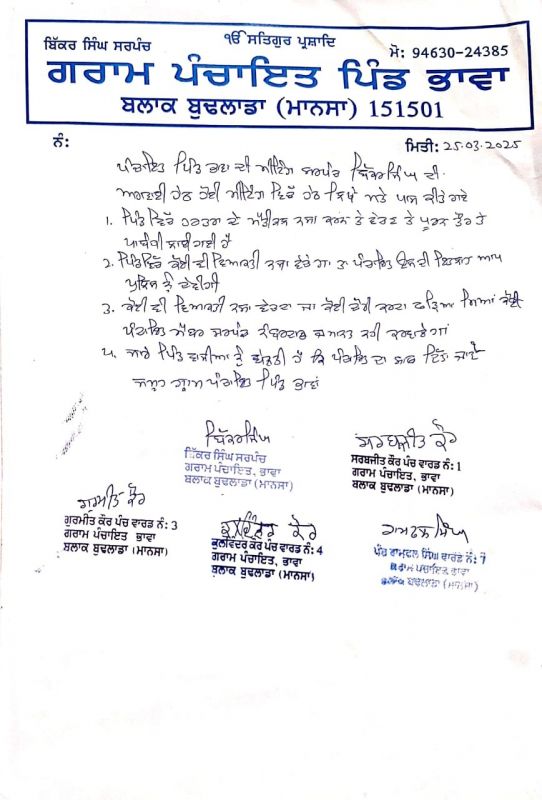 ੴ ਸਤਿਗੁਰ ਪ੍ਰਸ਼ਾਦਿ
ਬਿੱਕਰ ਸਿੰਘ ਸਰਪੰਚ
ਮੋ: 94630-24385
ਗਰਾਮ ਪੰਚਾਇਤ ਪਿੰਡ ਭਾਵਾ
ਬਲਾਕ ਬੁਢਲਾਡਾ (ਮਾਨਸਾ) 151501
ਨੰ:
ਮਿਤੀ: 25.03.2025
ਪੰਚਾਇਤ ਪਿੰਡ ਭਾਵਾ ਦੀ ਮੀਟਿੰਗ ਸਰਪੰਚ ਬਿੱਕਰ ਸਿੰਘ ਦੀ
ਅਗਵਾਈ ਹੇਠ ਹੋਈ ਮੀਟਿੰਗ ਵਿੱਚ ਹੇਠ ਲਿਖੇ ਮਤੇ ਪਾਸ ਕੀਤੇ ਗਏ
1. ਪਿੰਡ ਵਿੱਚ ਦੇ ਨਸ਼ਾ ਕਰਨ ਤੇ ਵੇਚਣ ਤੇ ਪੂਰਨ ਤੌਰ ਤੇ
ਪਾਬੰਦੀ ਲਾਈ ਗਈ ਹੈ
2. ਪਿੰਡ ਵਿੱਚ ਕੋਈ ਵੀ ਵਿਅਕਤੀ ਨਸ਼ਾ ਵੇਚੇਗਾ ਤਾਂ ਪੰਚਾਇਤ ਉਸਦੀ ਆਪ
ਪੁਲਿਸ ਨੂੰ ਦੇਵੇਗੀ
3. ਕੋਈ ਵੀ ਵਿਅਕਤੀ ਨਸ਼ਾ ਵੇਚਦਾ ਜਾ ਕੋਈ ਚੋਰੀ ਕਰਦਾ ਫੜਿਆ ਗਿਆ ਕੋਈ
ਪੰਚਾਇਤ ਮੈਂਬਰ ਸਰਪੰਚ ਨੰਬਰਦਾਰ ਜ਼ਮਾਨਤ ਨਹੀਂ ਕਰਵਾਏਗਾ
4. ਸਾਰੇ ਪਿੰਡ ਵਾਸੀਆਂ ਨੂੰ ਬੇਨਤੀ ਹੈ ਕਿ ਪੰਚਾਇਤ ਦਾ ਸਾਥ ਦਿੱਤਾ ਜਾਵੇ
ਗ੍ਰਾਮ ਪੰਚਾਇਤ ਪਿੰਡ ਭਾਵਾ
ਬਿੱਕਰ ਸਿੰਘ
ਬਿੱਕਰ ਸਿੰਘ ਸਰਪੰਚ
ਗਰਾਮ ਪੰਚਾਇਤ, ਭਾਵਾ
ਬਲਾਕ ਬੁਢਲਾਡਾ (ਮਾਨਸਾ)
ਸਰਬਜੀਤ ਕੌਰ
ਸਰਬਜੀਤ ਕੌਰ ਪੰਚ ਵਾਰਡ ਨੰ: 1
ਗਰਾਮ ਪੰਚਾਇਤ, ਭਾਵਾ
ਬਲਾਕ ਬੁਢਲਾਡਾ (ਮਾਨਸਾ)
ਗੁਰਮੀਤ ਕੌਰ
ਗੁਰਮੀਤ ਕੌਰ ਪੰਚ ਵਾਰਡ ਨੰ: 3
ਗਰਾਮ ਪੰਚਾਇਤ ਭਾਵਾ
ਬਲਾਕ ਬੁਢਲਾਡਾ (ਮਾਨਸਾ)
ਕੁਲਵਿੰਦਰ ਕੌਰ
ਕੁਲਵਿੰਦਰ ਕੌਰ ਪੰਚ ਵਾਰਡ ਨੰ: 4
ਗਰਾਮ ਪੰਚਾਇਤ, ਭਾਵਾ
ਬਲਾਕ ਬੁਢਲਾਡਾ (ਮਾਨਸਾ)
ਰਾਮਫਲ ਸਿੰਘ
ਪੰਚ ਰਾਮਫਲ ਸਿੰਘ ਵਾਰਡ ਨੰ: 7
ਗਰਾਮ ਪੰਚਾਇਤ, ਭਾਵਾ
ਬਲਾਕ ਬੁਢਲਾਡਾ (ਮਾਨਸਾ)